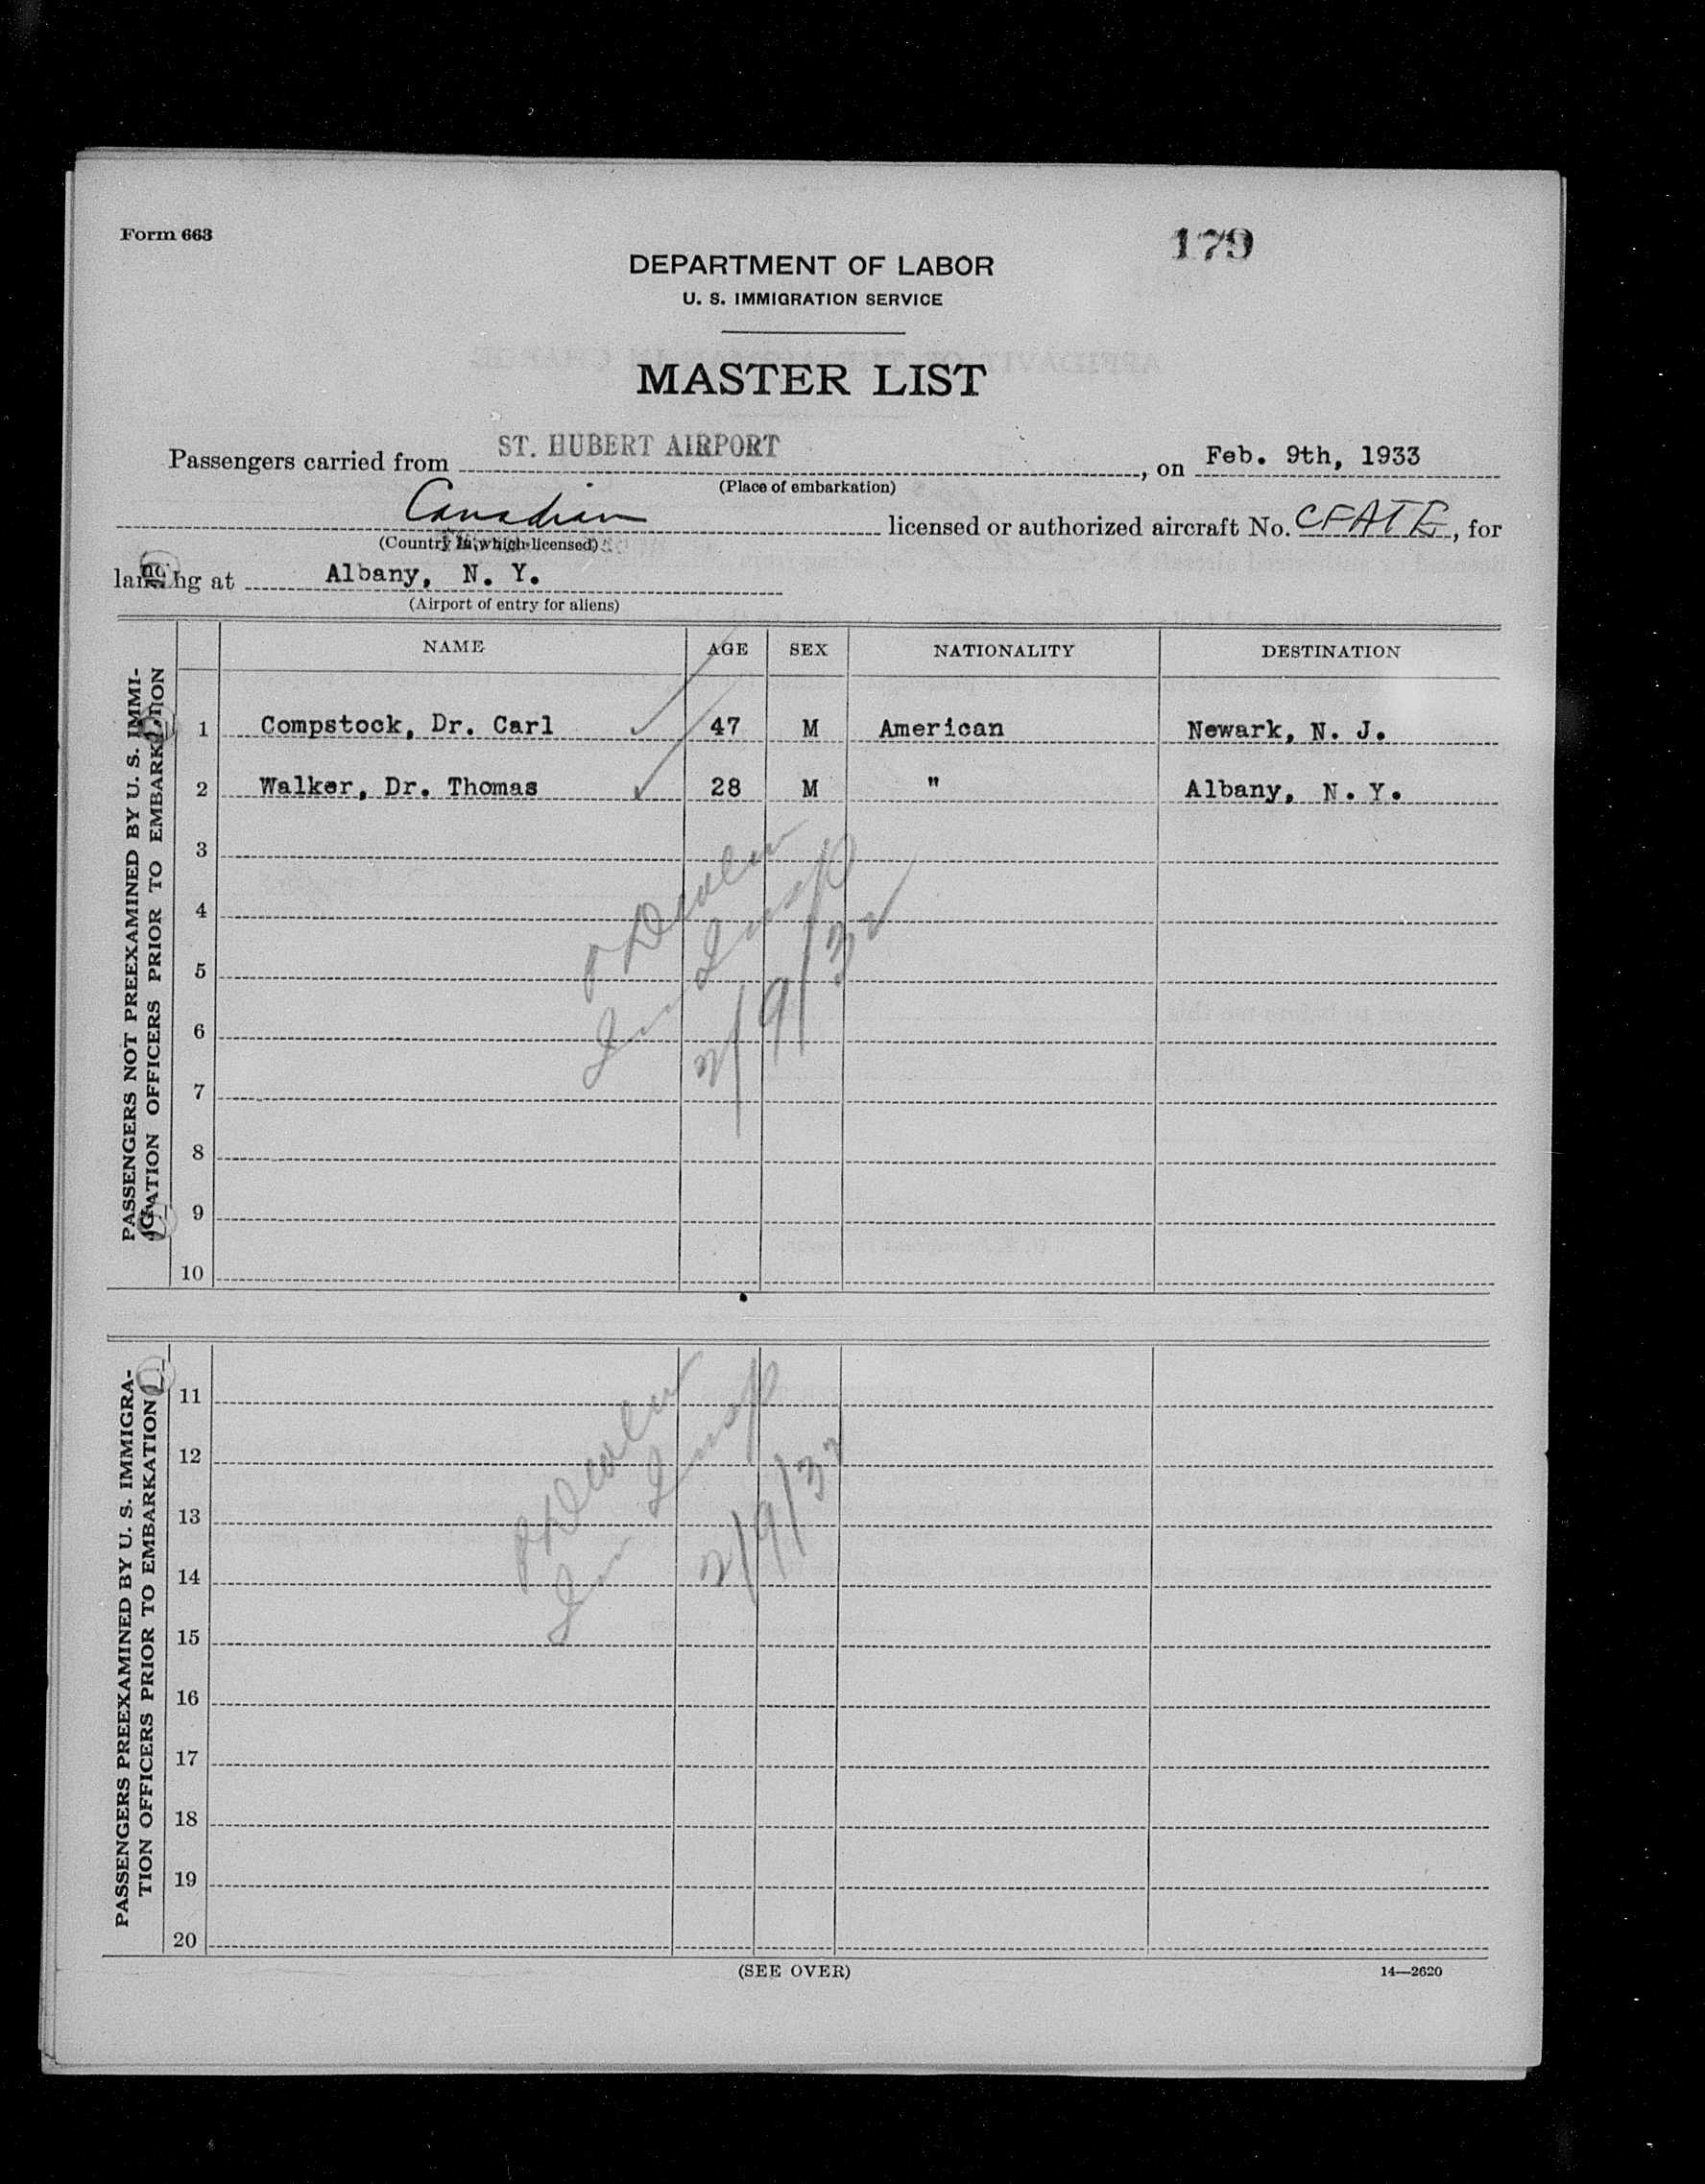 Form 663
179
DEPARTMENT OF LABOR
U. S. IMMIGRATION SERVICE
MASTER LIST
Passengers carried from ST. HUBERT AIRPORT, on Feb. 9th, 1933
(Place of embarkation)
Canadian licensed or authorized aircraft No. CFATE, for
(Country in which licensed)
landing at Albany, N. Y.
(Airport of entry for aliens)
NAME AGE SEX NATIONALITY DESTINATION
PASSENGERS NOT PREEXAMINED BY U. S. IMMI-
GRATION OFFICERS PRIOR TO EMBARKATION
1 Compstock, Dr. Carl 47 M American Newark, N. J.
2 Walker, Dr. Thomas 28 M " Albany, N. Y.
3
4
5
6
7
8
9
10
2/9/32
PASSENGERS PREEXAMINED BY U. S. IMMIGRA-
TION OFFICERS PRIOR TO EMBARKATION
11
12
13
14
15
16
17
18
19
20
2/9/32
(SEE OVER)
14—2620